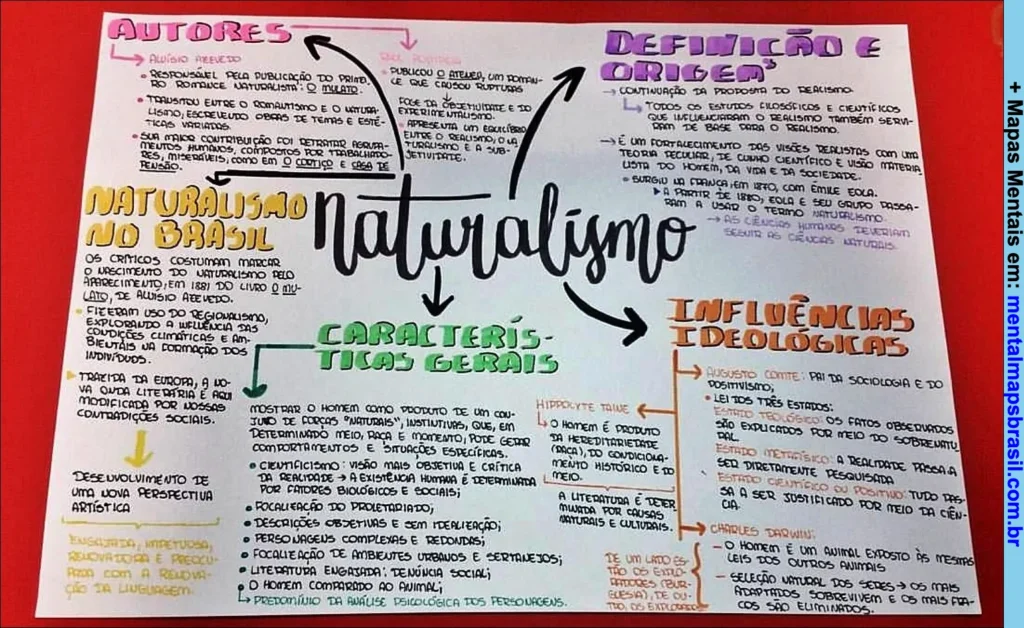 AUTORES
ALUÍSIO AZEVEDO
• RESPONSÁVEL PELA PUBLICAÇÃO DO PRIMEI-
RO ROMANCE NATURALISTA: O MULATO.
• TRANSITOU ENTRE O ROMANTISMO E O NATURA-
LISMO, ESCREVENDO OBRAS DE TEMAS E ESTÉ-
TICAS VARIADAS.
• SUA MAIOR CONTRIBUIÇÃO FOI RETRATAR AGRUPA-
MENTOS HUMANOS, COMPOSTOS POR TRABALHADO-
RES, MISERÁVEIS, COMO EM O CORTIÇO E CASA DE
PENSÃO.
RAUL POMPÉIA
• PUBLICOU O ATENEU, UM ROMAN-
CE QUE CAUSOU RUPTURAS
FOGE DA OBJETIVIDADE E DO
EXPERIMENTALISMO.
• APRESENTA UM EQUILÍBRIO
ENTRE O REALISMO, O NA
TURALISMO E A SUB-
JETIVIDADE.
DEFINIÇÃO E
ORIGEM
→ CONTINUAÇÃO DA PROPOSTA DO REALISMO.
↳ TODOS OS ESTUDOS FILOSÓFICOS E CIENTÍFICOS
QUE INFLUENCIARAM O REALISMO TAMBÉM SERVI-
RAM DE BASE PARA O REALISMO.
→ É UM FORTALECIMENTO DAS VISÕES REALISTAS COM UMA
TEORIA PECULIAR, DE CUNHO CIENTÍFICO E VISÃO MATERIA
LISTA DO HOMEM, DA VIDA E DA SOCIEDADE.
• SURGIU NA FRANÇA, EM 1870, COM ÉMILE ZOLA.
▸ A PARTIR DE 1880, ZOLA E SEU GRUPO PASSA-
RAM A USAR O TERMO NATURALISMO.
→ AS CIÊNCIAS HUMANAS DEVERIAM
SEGUIR AS CIÊNCIAS NATURAIS.
naturalismo
NATURALISMO
NO BRASIL
OS CRÍTICOS COSTUMAM MARCAR
O NASCIMENTO DO NATURALISMO PELO
APARECIMENTO, EM 1881 DO LIVRO O MU-
LATO, DE ALUISIO AZEVEDO.
• FIZERAM USO DO REGIONALISMO,
EXPLORANDO A INFLUÊNCIA DAS
CONDIÇÕES CLIMÁTICAS E AM-
BIENTAIS NA FORMAÇÃO DOS
INDIVÍDUOS.
▸ TRAZIDA DA EUROPA, A NO-
VA ONDA LITERÁRIA É AQUI
MODIFICADA POR NOSSAS
CONTRADIÇÕES SOCIAIS.
DESENVOLVIMENTO DE
UMA NOVA PERSPECTIVA
ARTÍSTICA
ENGAJADA, IMPETUOSA,
RENOVADORA E PREOCU-
PADA COM A RENOVA-
ÇÃO DA LINGUAGEM.
CARACTERÍS-
TICAS GERAIS
MOSTRAR O HOMEM COMO PRODUTO DE UM CON-
JUNO DE FORÇAS "NATURAIS", INSTINTIVAS, QUE, EM
DETERMINADO MEIO, RAÇA E MOMENTO, PODE GERAR
COMPORTAMENTOS E SITUAÇÕES ESPECÍFICAS.
• CIENTIFICISMO: VISÃO MAIS OBJETIVA E CRÍTICA
DA REALIDADE → A EXISTÊNCIA HUMANA É DETERMINADA
POR FATORES BIOLÓGICOS E SOCIAIS;
• FOCALIZAÇÃO DO PROLETARIADO;
• DESCRIÇÕES OBJETIVAS E SEM IDEALIZAÇÃO;
• PERSONAGENS COMPLEXAS E REDONDAS;
• FOCALIZAÇÃO DE AMBIENTES URBANOS E SERTANEJOS;
• LITERATURA ENGAJADA: DENÚNCIA SOCIAL;
• O HOMEM COMPARADO AO ANIMAL;
↳ PREDOMÍNIO DA ANÁLISE PSICOLÓGICA DOS PERSONAGENS.
INFLUÊNCIAS
IDEOLÓGICAS
HIPPOLYTE TAINE
↳ O HOMEM É PRODUTO
DA HEREDITARIEDADE
(RAÇA), DO CONDICIONA-
MENTO HISTÓRICO E DO
MEIO.
A LITERATURA É DETER
MINADA POR CAUSAS
NATURAIS E CULTURAIS.
AUGUSTO COMTE: PAI DA SOCIOLOGIA E DO
POSITIVISMO;
• LEI DOS TRÊS ESTADOS:
ESTADO TEOLÓGICO: OS FATOS OBSERVADOS
SÃO EXPLICADOS POR MEIO DO SOBRENATU
RAL.
ESTADO METAFÍSICO: A REALIDADE PASSA A
SER DIRETAMENTE PESQUISADA
ESTADO CIENTÍFICO OU POSITIVO: TUDO PAS-
SA A SER JUSTIFICADO POR MEIO DA CIÊN-
CIA.
CHARLES DARWIN:
– O HOMEM É UM ANIMAL EXPOSTO ÀS MESMAS
LEIS DOS OUTROS ANIMAIS
– SELEÇÃO NATURAL DOS SERES → OS MAIS
ADAPTADOS SOBREVIVEM E OS MAIS FRA-
COS SÃO ELIMINADOS.
DE UM LADO ES-
TÃO OS EXPLO-
RADORES (BUR-
GUESIA), DE OU-
TRO, OS EXPLORADOS
+ Mapas Mentais em: mentalmapsbrasil.com.br